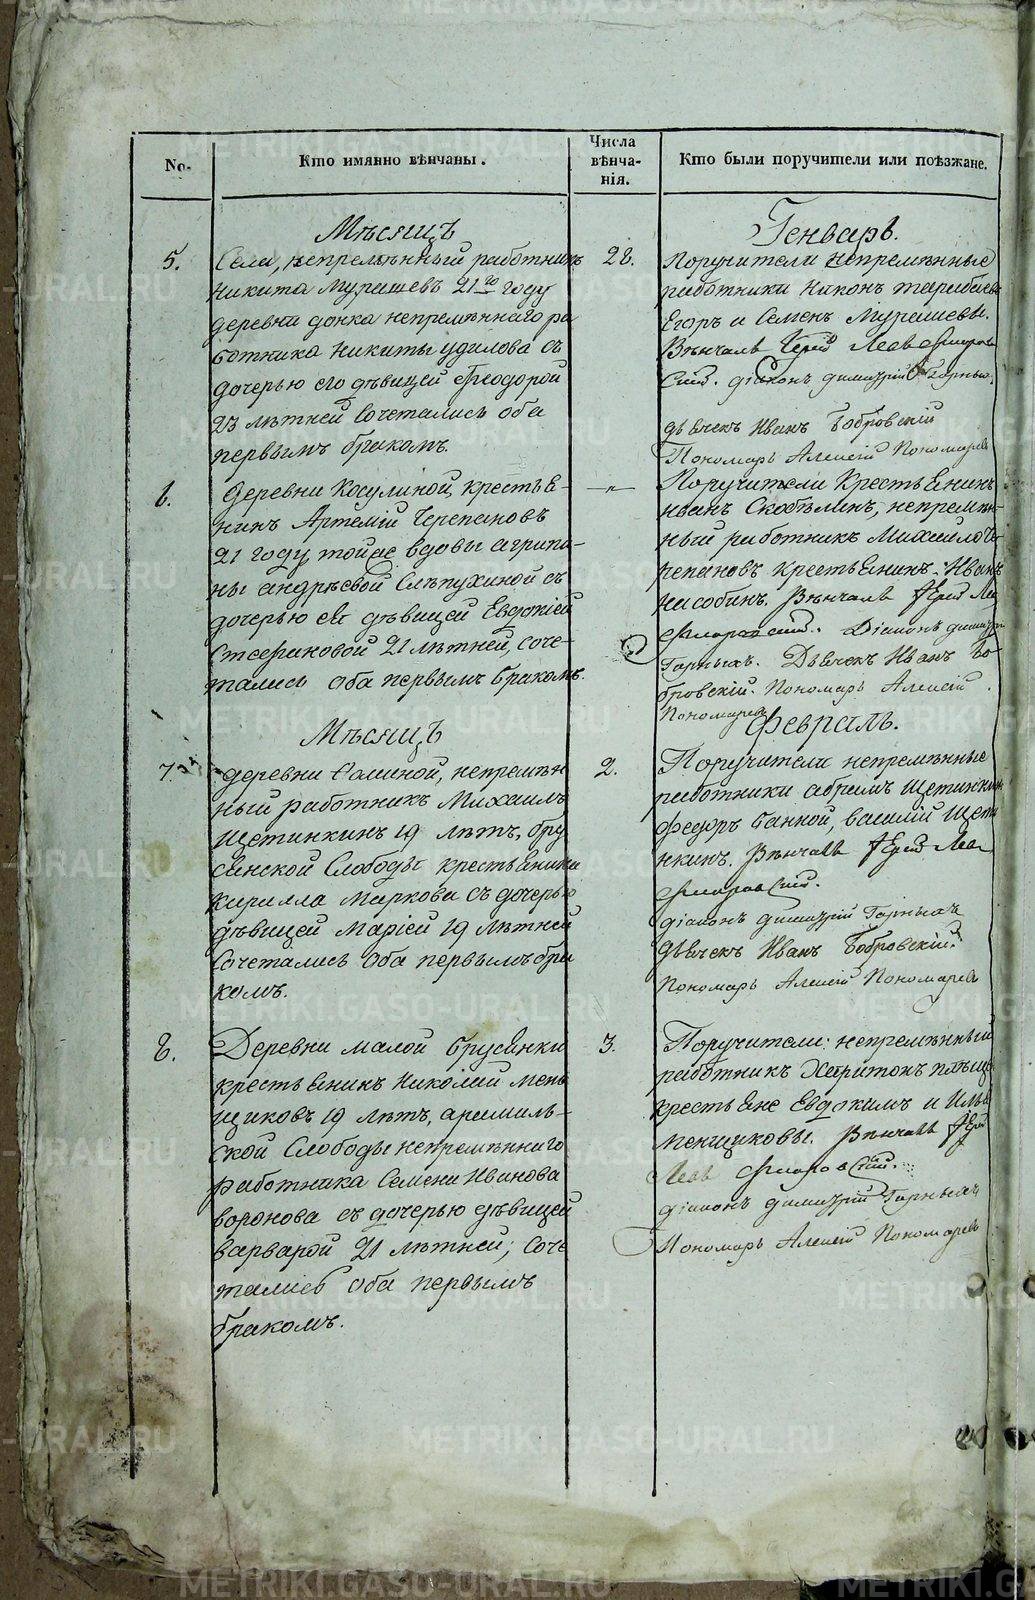 No.
Кто имянно вѣнчаны.
Числа
вѣнча-
нія.
Кто были поручители или поѣзжане.
Мѣсяцъ
Генварь.
5.
Села, непремѣнный работникъ
Никита Мурашевъ 21го году
деревни донка непремѣннаго ра
ботника Никиты Удилова съ
дочерью его дѣвицей Феодорой
23 лѣтней Сочетались оба
первымъ бракомъ.
28.
Поручители непремѣнные
работники Никонъ
Егоръ и Семенъ Мурашевы.
Вѣнчалъ Іерей Левъ Флоров
ский. діаконъ Димитрій Горныхъ.
дьячекъ Иванъ Бобровскій
Пономарь Алексій Пономаревъ
6.
деревни Косулиной, крестья-
нинъ Артемій Черепановъ
21 году тойже вдовы Агрипи-
ны Андрѣевой Слѣпухиной съ
дочерью ея дѣвицей Евдокіей
Стефановой 21 лѣтней, соче-
тались оба первымъ бракомъ.
-"-
Поручители Крестьянинъ
Иванъ Скобѣлинъ, непремѣн-
ный работникъ Михайло Че-
репановъ крестьянинъ Иванъ
Вѣнчалъ Іерей Левъ
Флоровский. Діаконъ Димитрій
Горныхъ. Дьячекъ Иванъ Бо-
бровскій. Пономарь Алексій
Пономаревъ
Мѣсяцъ
Февраль.
7.
деревни Фоминой, непремѣн
ный работникъ Михаилъ
Щетинкинъ 19 лѣтъ, бру
сянской Слободы крестьянина
Кирилла Маркова съ дочерью
дѣвицей Маріей 19 лѣтней
Сочетались оба первымъ бра
комъ.
2.
Поручители непремѣнные
работники Абрамъ Щетинкинъ
Федоръ Банной, Василій Щети
нкинъ. Вѣнчалъ Іерей Левъ
Флоровский.
діаконъ Димитрій Горныхъ
дьячекъ Иванъ Бобровскій.
Пономарь Алексій Пономаревъ
8.
Деревни малой брусянки
крестьянинъ Николай мень
щиковъ 19 лѣтъ, арамиль-
ской Слободы непремѣннаго
работника Семена Иванова
Воронова съ дочерью дѣвицей
Варварой 21 лѣтней; соче
тались оба первымъ
бракомъ.
3.
Поручители: непремѣнный
работникъ Харитонъ
крестьяне Евдокимъ и Илья
Менщиковы. Вѣнчалъ Іерей
Левъ Флоровский.
діаконъ Димитрій Горныхъ
Пономарь Алексій Пономаревъ
METRIKI.GASO-URAL.RU